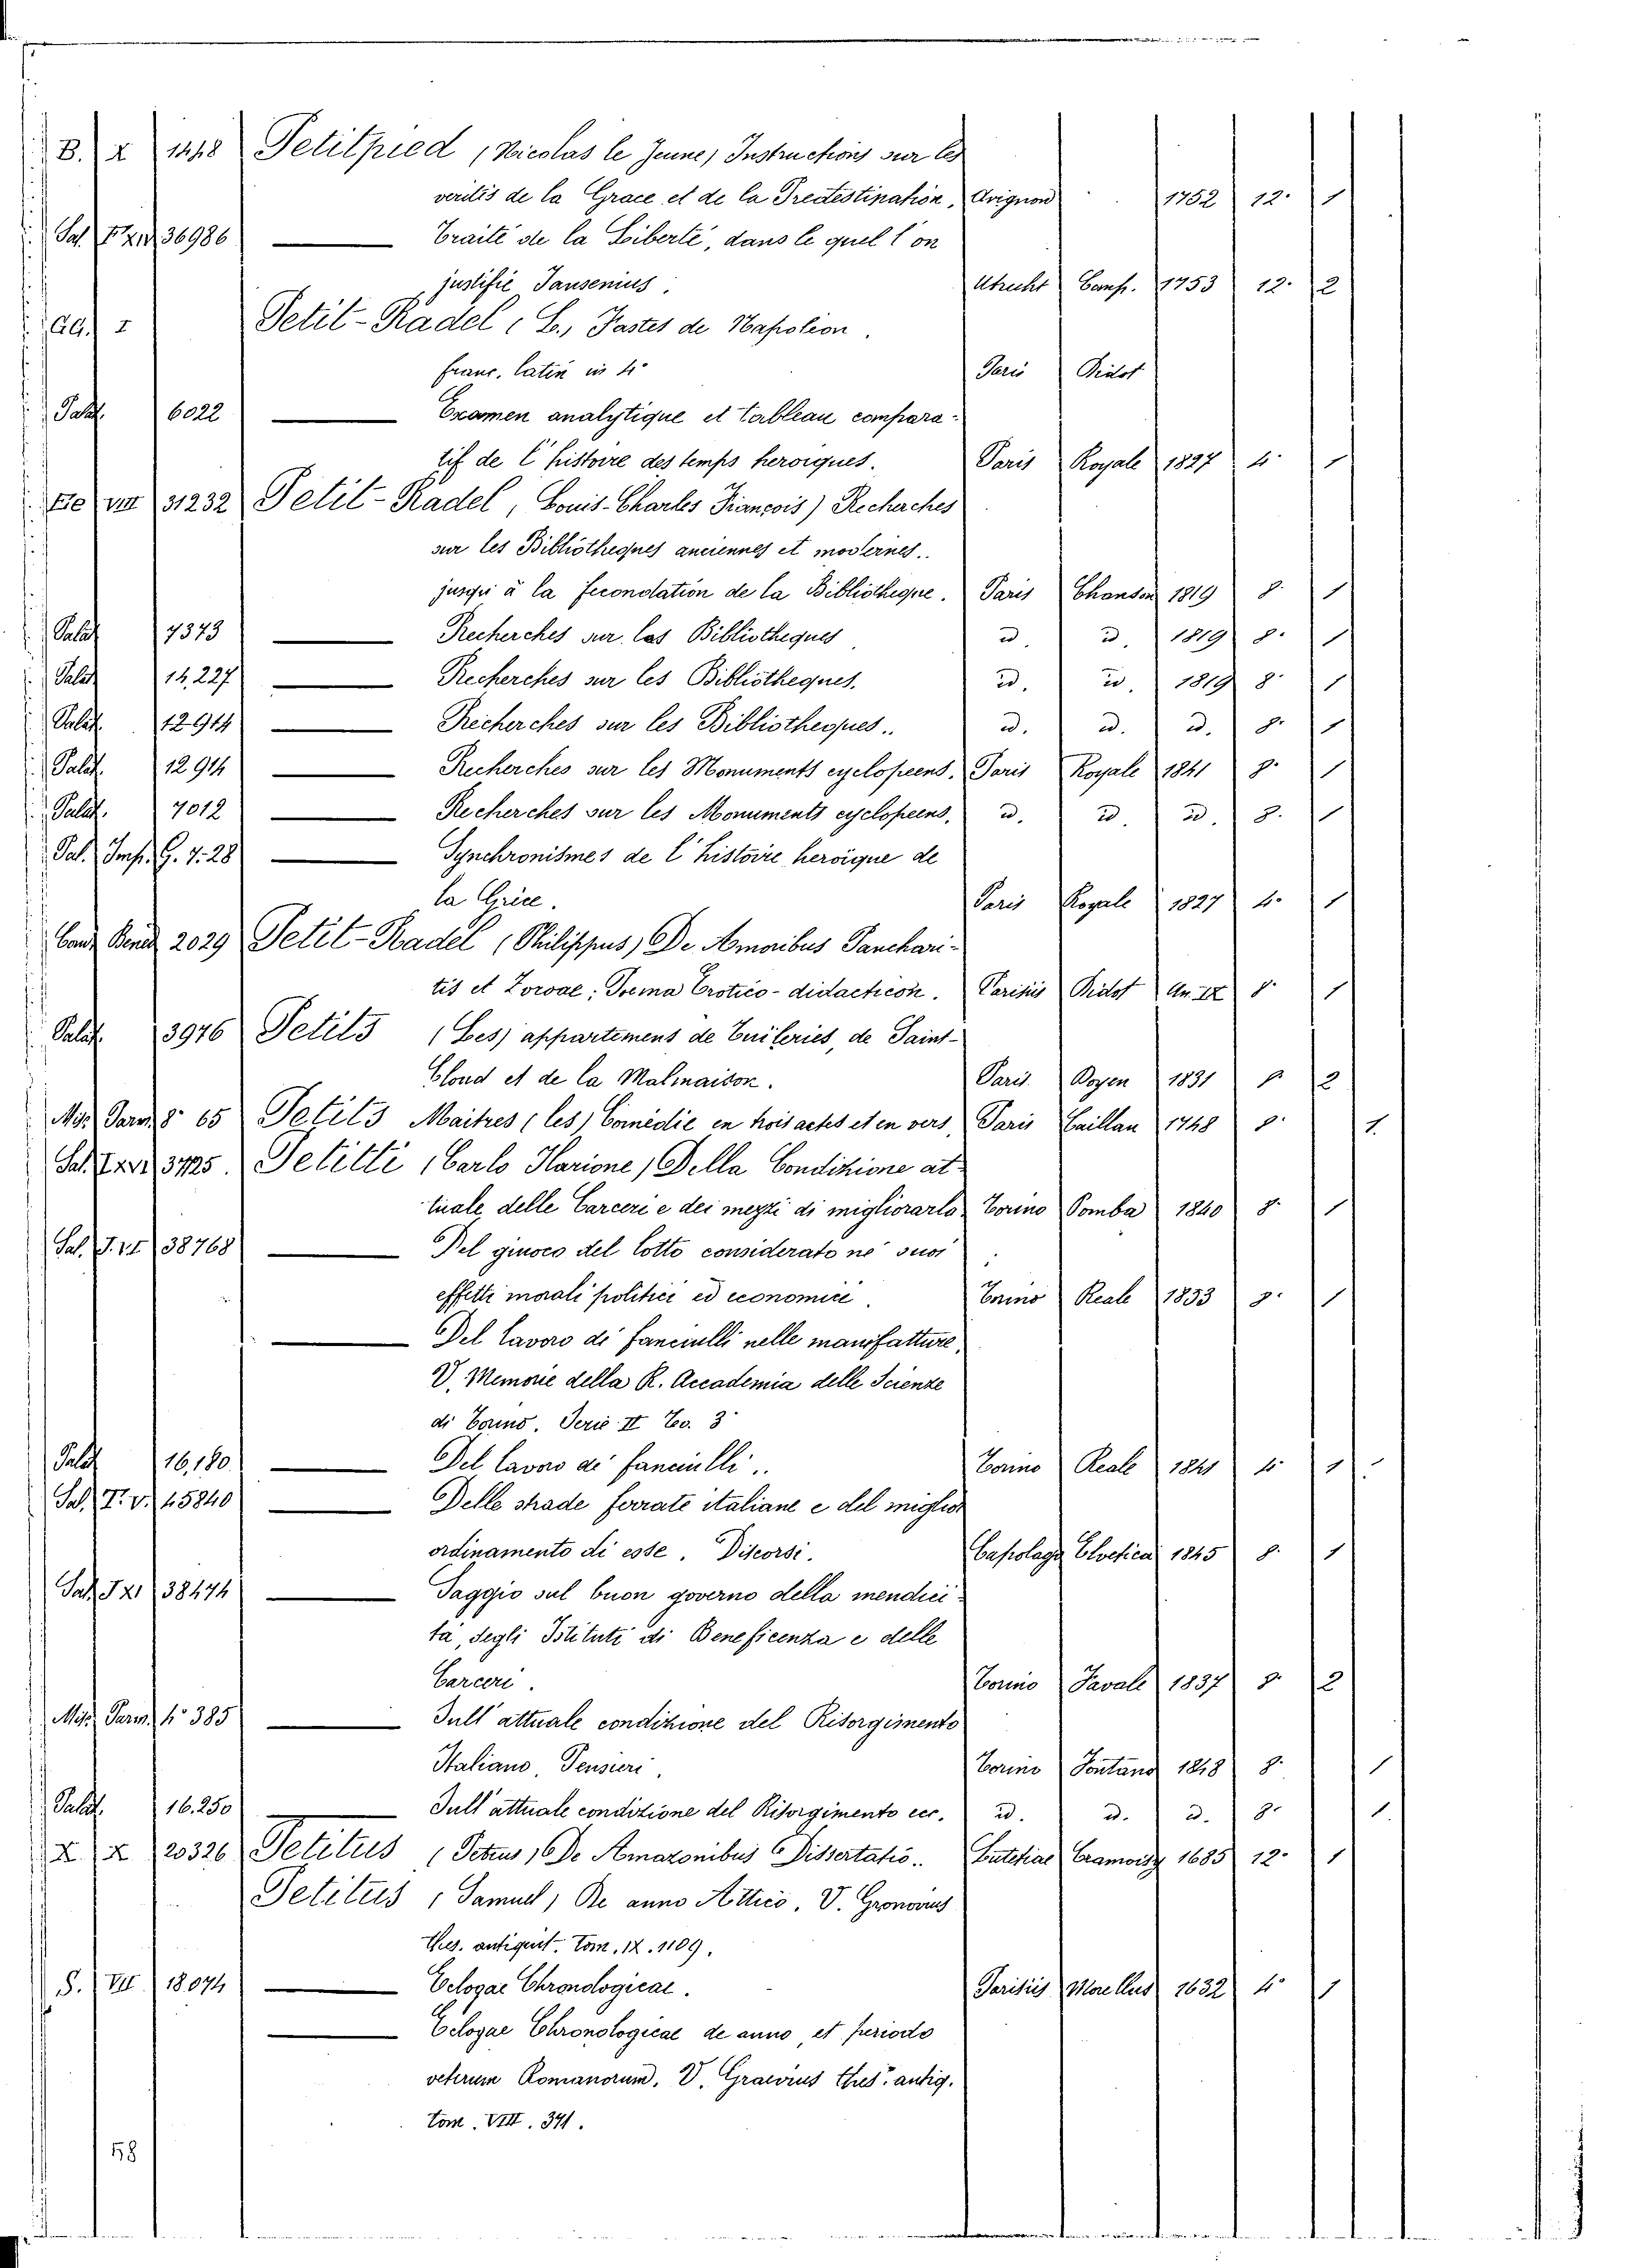 B. X 1448 Petitpied (Nicolas le Jeune) Instructions sur les
verités de la Grace et de la Predestination, Avignon 1752 12° 1
Sal. 36986 — Traité de la Liberté, dans le quel l'on
justifie Jansenius. Utrecht Comp. 1753 12° 2
Petit-Radel (L.) Fastes de Napoléon.
franc. latin in 4° Paris Didot
Palat. 6022 — Examen analytique et tableau compara-
tif de l'histoire des temps heroiques. Paris Royale 1827 4° 1
VIII 31232 Petit-Radel (Louis-Charles François) Recherches
sur les Bibliotheques anciennes et modernes..
jusqu'à la fecondation de la Bibliotheque. Paris Chanson 1819 8° 1
Palat. 7373 — Recherches sur las Bibliotheques id. id. 1819 8° 1
Palat. 14.227 — Recherches sur les Bibliotheques. id. id. 1819 8° 1
Palat. 12914 — Recherches sur les Bibliotheques.. id. id. id. 8° 1
Palat. 12914 — Recherches sur les Monuments cyclopeens. Paris Royale 1841 8° 1
Palat. 7012 — Recherches sur les Monuments cyclopeens. id. id. id. 8° 1
Pal. Imp. G. 7.28 — Synchronismes de l'histoire heroique de
la Gréce. Paris Royale 1827 4° 1
2029 Petit-Radel (Philippus) De Amoribus Panchari-
tis et Zoroae; Poema Erotico-didacticon. Parisiis Didot An. IX 8° 1
Palat. 3976 Petits (Les) appartemens de Tuileries, de Saint-
Cloud et de la Malmaison. Paris Doyen 1831 8° 2
Mis. Parm. 8° 65 Petits Maitres (les) Comédie en trois actes et en vers, Paris Caillau 1748 8° 1.
Sal. 3725. Petitti (Carlo Ilarione) Della Condizione at-
tuale delle Carceri e dei mezzi di migliorarlo Torino Pomba 1840 8° 1
Sal. 38768 — Del giuoco del lotto considerato ne' suoi
effetti morali politici ed economici. Torino Reale 1853 8° 1
— Del lavoro di fanciulli nelle manifatture,
V. Memorie della R. Accademia delle Scienze
di Torino. Serie II To. 3°
Palat. 16,180 — Del lavoro di fanciulli.. Torino Reale 1841 4° 1
Sal. T. V. 45840 — Delle strade ferrate italiane e del miglior
ordinamento di esse. Discorsi. Capolago Elvetica 1845 8° 1
Sal. 38474 — Saggio sul buon governo della mendici-
tà, degli Istituti di Beneficenza e delle
Carceri. Torino Favale 1837 8° 2
Mis. Parm. 4° 385 — Sull'attuale condizione del Risorgimento
Italiano, Pensieri. Torino Fontana 1848 8° 1
Palat. 16.250 — Sull'attuale condizione del Risorgimento ecc. id. id. id. 8° 1.
X X 20326 Petitus (Petrus) De Amazonibus Dissertatio.. Lutetiae Cramoisy 1685 12° 1
Petitus (Samuel) De anno Attico. V. Gronovius
thes. antiquit. tom. IX. 1109.
S. VII 18074 — Eclogae Chronologicae. Parisiis Morellus 1632 4° 1
— Eclogae Chronologicae de anno et periodo
veterum Romanorum. V. Graevius thes. antiq.
tom. VIII. 391.
58